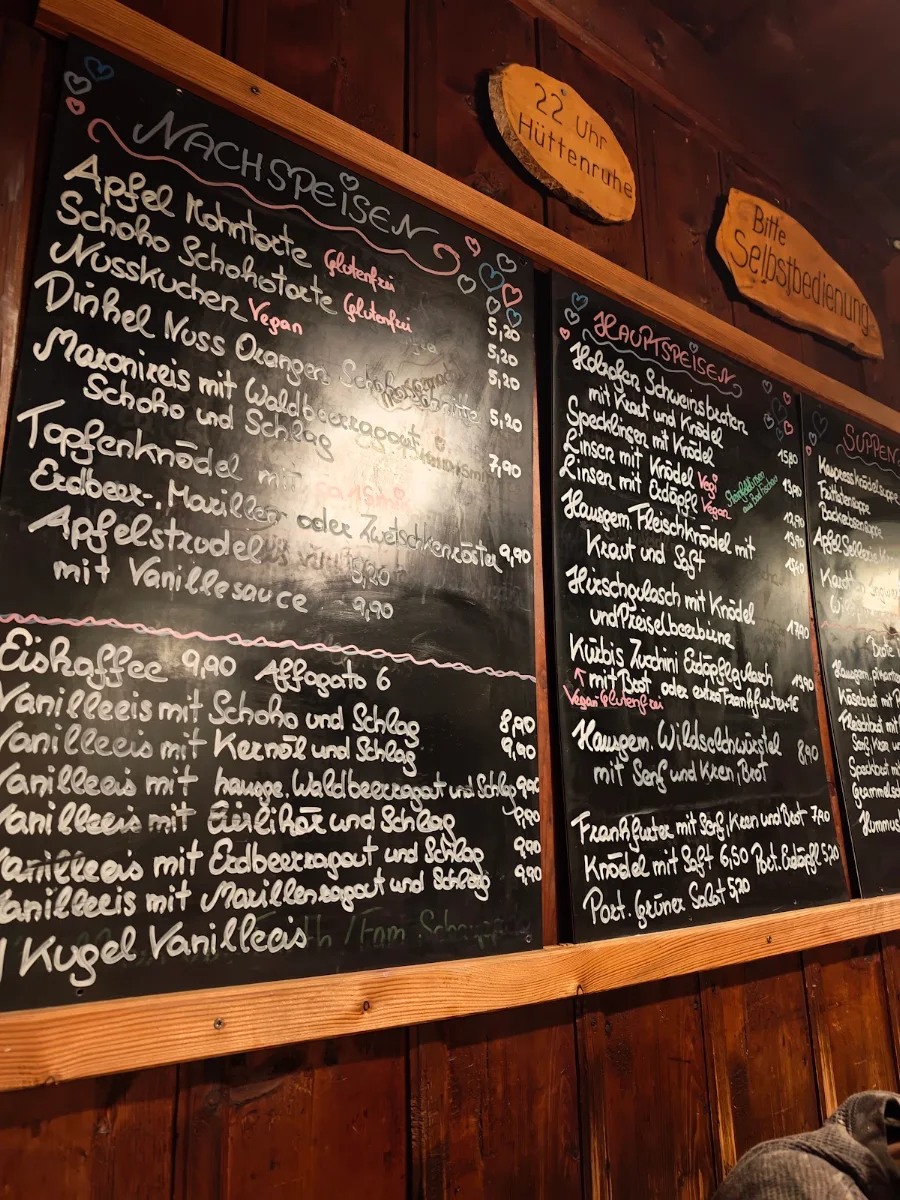 22 Uhr
Hüttenruhe
Bitte
Selbstbedienung
NACHSPEISEN
Apfel Mohntorte Glutenfrei 5,20
Schoko Schokotorte Glutenfrei 5,20
Nusskuchen Vegan 5,20
Dinkel Nuss Orangen Schokoschnitte 5,20
Maronireis mit Waldbeerragout 7,90
Schoko und Schlag
Topfenknödel mit
Erdbeer-, Marillen oder Zwetschkenröster 9,90
Apfelstrudel 5,20
mit Vanillesauce 9,90
Eiskaffee 9,90 Affogato 6
Vanilleeis mit Schoko und Schlag 8,90
Vanilleeis mit Kernöl und Schlag 9,90
Vanilleeis mit hausge. Waldbeerragout und Schlag 9,90
Vanilleeis mit Eierlikör und Schlag 9,90
Vanilleeis mit Erdbeerragout und Schlag 9,90
Vanilleeis mit Marillenragout und Schlag 9,90
1 Kugel Vanilleeis
HAUPTSPEISEN
Holzofen Schweinsbraten
mit Kraut und Knödel 15,80
Specklinsen mit Knödel 13,90
Linsen mit Knödel Vegi 12,90
Linsen mit Erdäpfl Vegan 13,90
Hausgem. Fleischknödel mit
Kraut und Saft
Hirschgulasch mit Knödel
und Preiselbeerbirne 17,90
Kürbis Zucchini Erdäpflgulasch 13,90
mit Brot oder extra Frankfurter +1€
Vegan Glutenfrei
Hausgem. Wildselchwürstel 8,90
mit Senf und Kren, Brot
Frankfurter mit Senf, Kren und Brot 7,90
Knödel mit Saft 6,50 Port. Erdäpfl 5,20
Port. Grüner Salat 5,20
SUPPEN
Kaspressknödelsuppe
Frittatensuppe
Backerbsensuppe
Apfel Sellerie